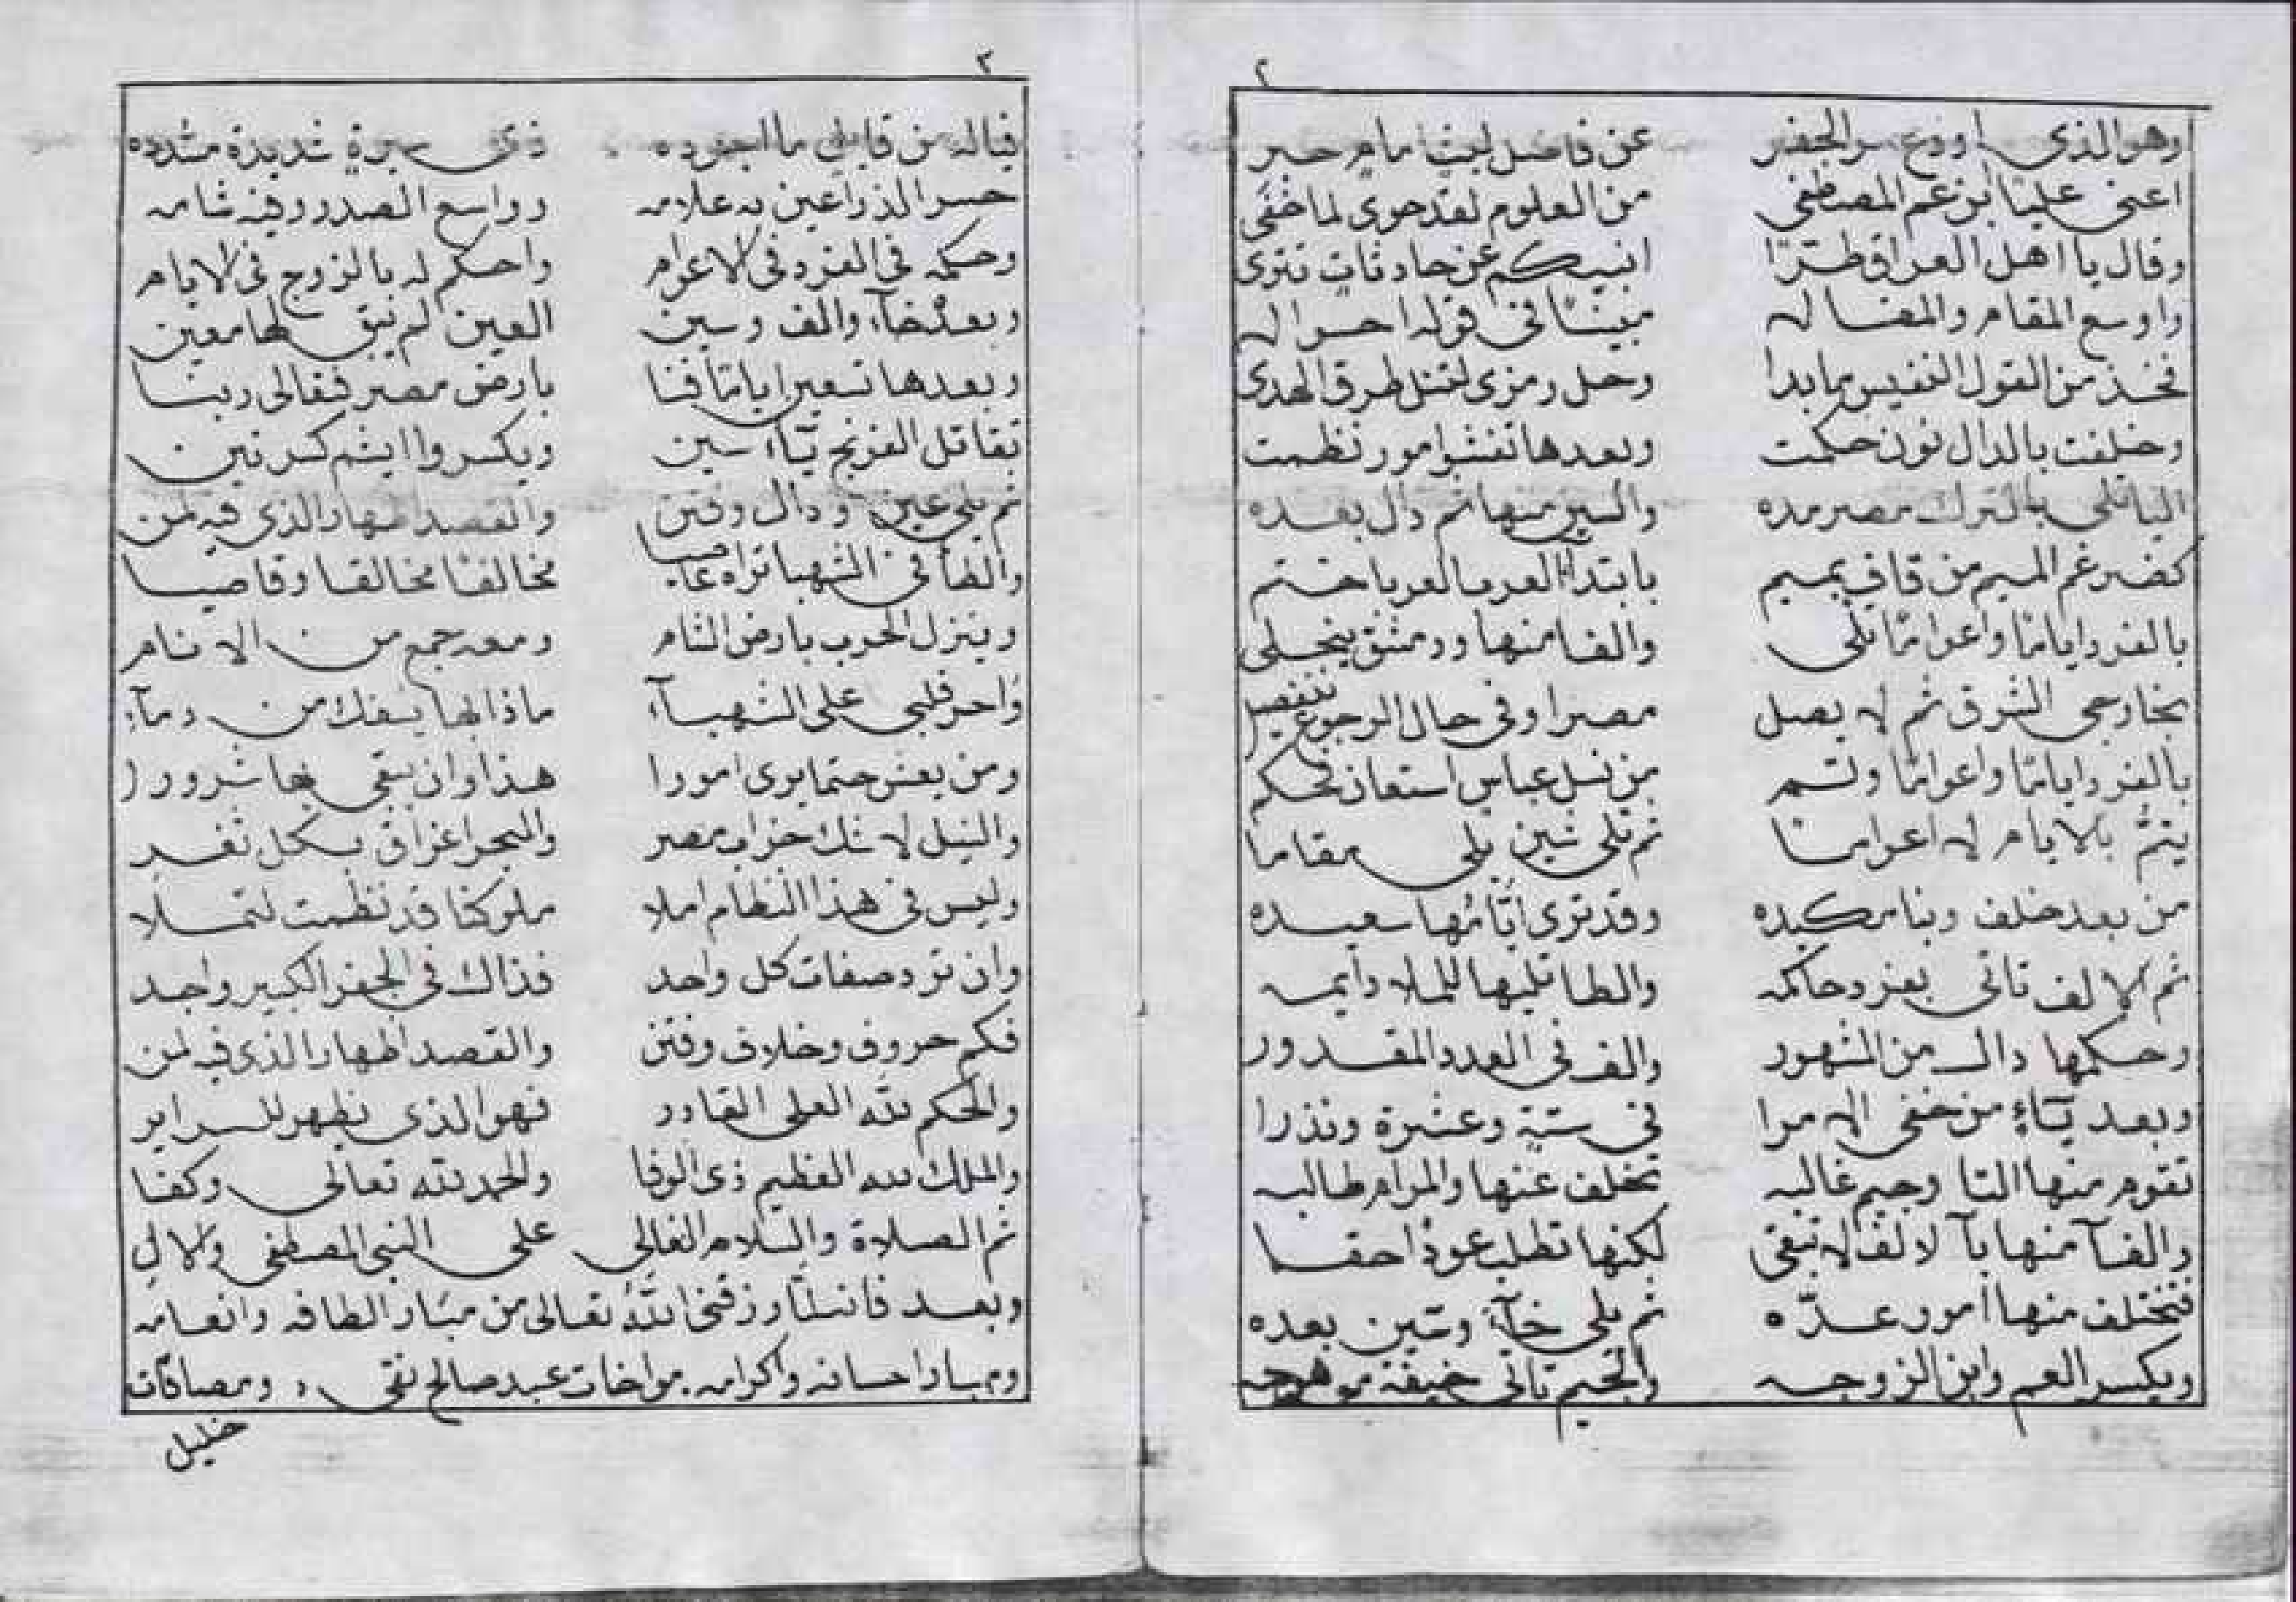 ٢
وهو الذي اودع سر الجفر عن فاضل ليث امام حبر
اعنى عليًا ابن عم المصطفى من العلوم لقد حوى لما خفى
وقال يا اهل العراق طرّا انبيكم عن حادثات تترى
واوسع المقام والمقاله مبينًا فى قوله احواله
فخذ من القول النفيس ما بدا وحل رمزى لتنل طرق الهدى
وخلفت بالدال نون حكمت وبعدها تفشوا مور نظمت
اليا تلى بالترك مصر مده والسين منها ثم دال بعده
كضرغم الميم من قاف بميم بابتدا العرب العربا ختم
بالفرد ايامًا واعوامًا تلى والفا منها ودمشق ينجلى
بخارجى الشرق ثم لا يصل مصرا وفى حال الرجوع تنفصل
بالفرد ايامًا واعوامًا ولتم من نسل عباس استعاذ تحكم
يتم بالايام لا اعوامًا ثم تلى شين يلى مقاما
من بعد خلف وبنا مكيده وقد ترى ايامها سعيده
ثم الالف تاتى بفرد حاكمه والطا تليها للملا دايمه
وحكمها دال من المشهور والف فى العدد المقدور
وبعد يآء من خفى الامرا فى ستة وعشرة ونذرا
تقوم منها التا وجيم غالبه تخلف عنها والمرام طالبه
والفآ منها بآ لالف لا تبقى لكنها تطلب عوذًا حقا
فتختلف منها امور عدّه ثم يلى خآء وسين بعده
ويكسر العم وابن الزوجه والجيم تاتى خيفة موهوجه
٣
فياله من قابل ما اجوده ذى سيرة شديدة مشدده
حسر الذراعين به علامه وواسع الصدر وفيه شامه
وحكمه فى الفرد فى الاعوام واحكم له بالزوج فى الايام
وبعد خآء والف وسين العين لم يبق لها معين
وبعدها تسعير اياما فنا بارض مصر فتعالى ربنا
تقاتل الفرنج يآء سين ويكسروا ايشم كسرتين
ثم يلى عين ودال وفتن والقصد اظهار الذى فيه لمن
والطا فى الشهبا تراه عاصيا مخالفا مخالفا وقاصيا
وينزل الحرب بارض الشام ومعه جمع من الانام
واحر قلبى على الشهبآء ماذا بها يسفك من دمآء
ومن يعش حتما يرى امورا هذا وان يبقى بها شرورا
والنيل لا شك خراب مصر والبحر اغراق بكل ثغر
وليس فى هذا النظام املا ملوكنا قد نظمت لتملا
وان ترد صفات كل واحد فذاك فى الجفر الكبير واجد
فكم حروف وخلاف وفتن والقصد اظهار الذى فيه لمن
والحكم لله العلى القادر فهو الذى يظهر للسراير
والملك لله العظيم ذى الوفا والحمد لله تعالى وكفا
ثم الصلاة والسلام الغالى على النبى المصطفى والال
وبعد فانى لما رزقنى الله تعالى من مبار الطافه وانعامه
ومبار احسانه واكرامه مواخات عبد صالح تقى ومصافات
خليل